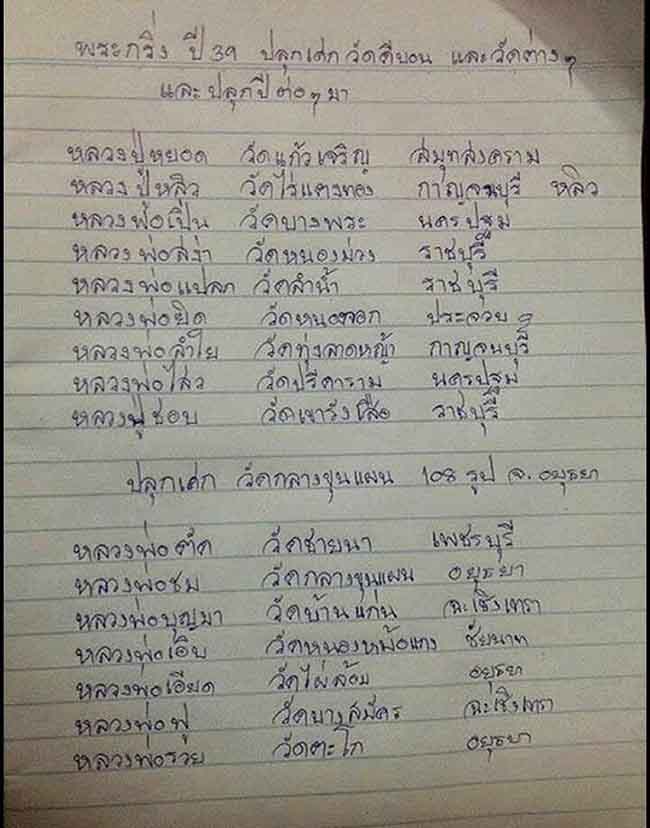 พระกริ่ง ปี 39 ปลุกเศก วัดดีบอน และวัดต่างๆ
และปลุกปีต่อๆมา
หลวงปู่หยอด วัดแก้วเจริญ สมุทสงคราม
หลวงปู่หลิว วัดไร่แตงทอง กาญจนบุรี หลิว
หลวงพ่อเปิ่น วัดบางพระ นครปฐม
หลวงพ่อสง่า วัดหนองม่วง ราชบุรี
หลวงพ่อแปลก วัดลำน้ำ ราชบุรี
หลวงพ่อยิด วัดหนองจอก ประจวบ
หลวงพ่อลำใย วัดทุ่งลาดหญ้า กาญจนบุรี
หลวงพ่อไสว วัดปรีดาราม นครปฐม
หลวงปู่ชอบ วัดเขารังเสือ ราชบุรี
ปลุกเศก วัดกลางขุนแผน 108 รูป จ. อยุธยา
หลวงพ่อตัด วัดชายนา เพชรบุรี
หลวงพ่อชม วัดกลางขุนแผน อยุธยา
หลวงพ่อบุญมา วัดบ้านแก่น ฉะเชิงเทรา
หลวงพ่อเอิบ วัดหนองหม้อแกง ชัยนาท
หลวงพ่อเอียด วัดไผ่ล้อม อยุธยา
หลวงพ่อฟู วัดบางสมัคร ฉะเชิงเทรา
หลวงพ่อรวย วัดตะโก อยุธยา